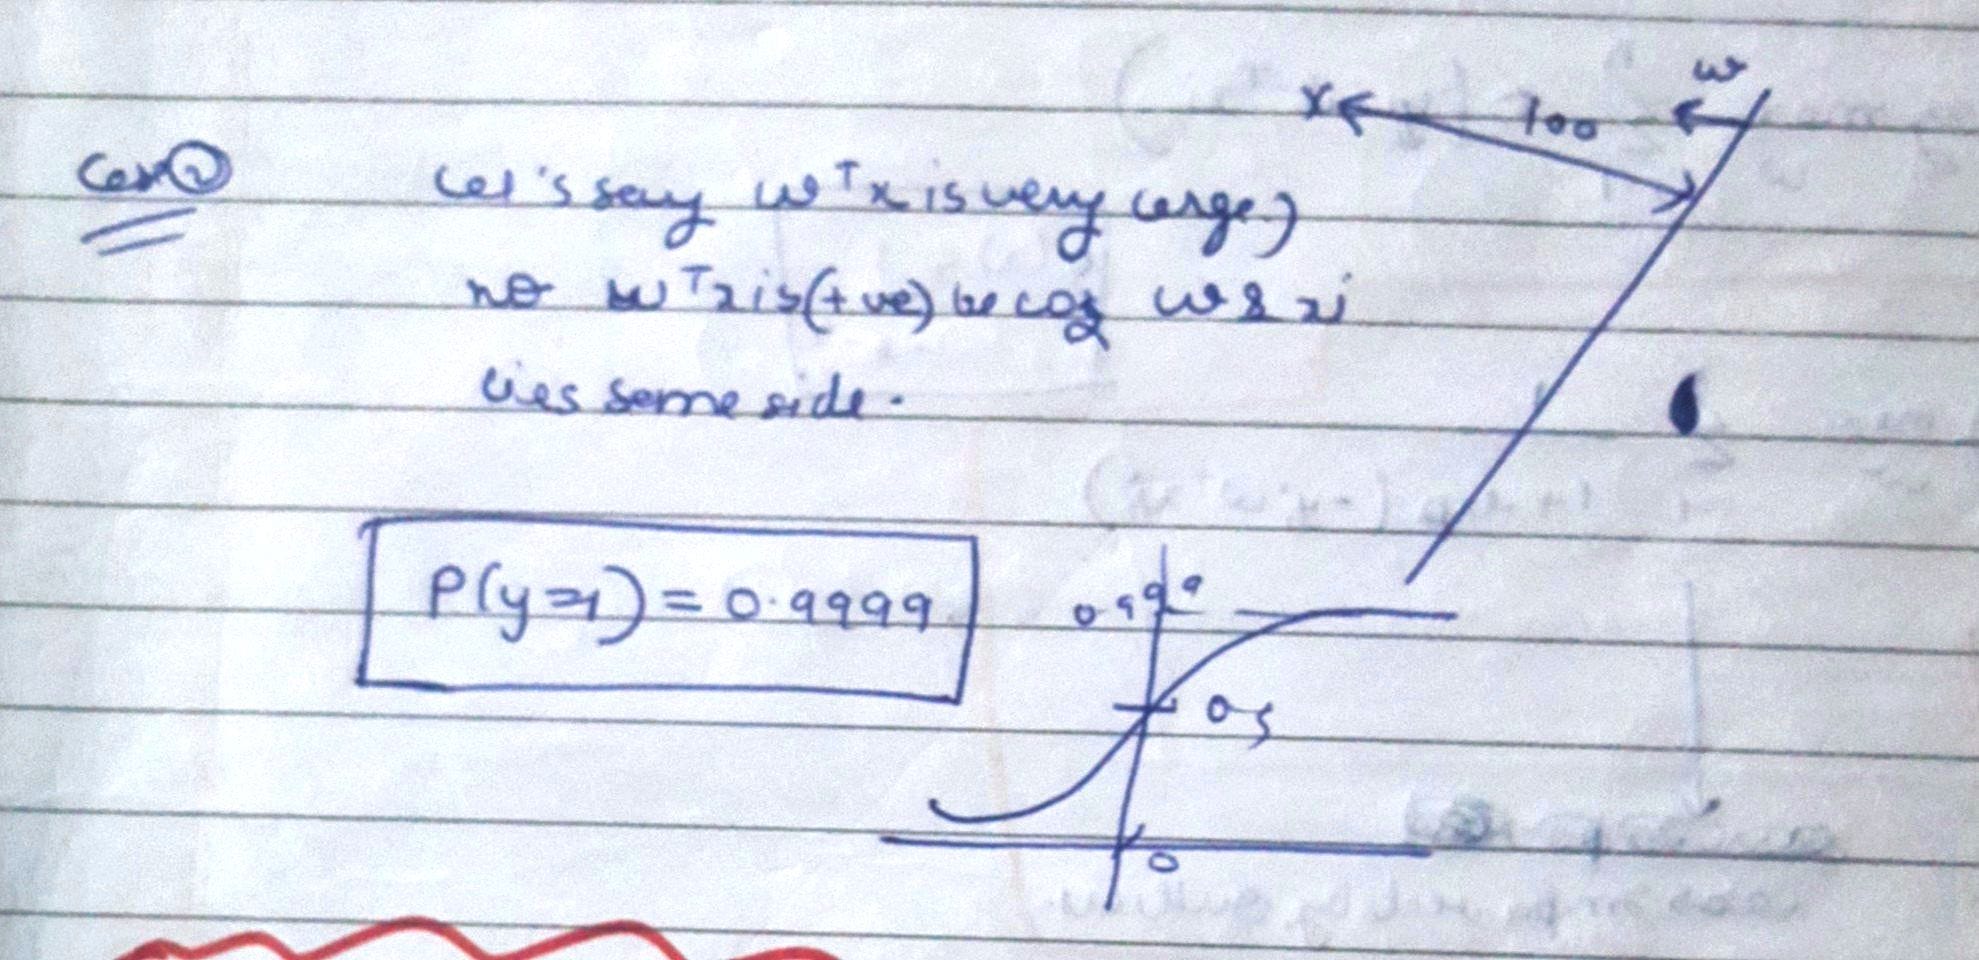 x 100 w
Case ②
Let's say wᵀx is very large,
wᵀxi is (+ve) becoz w & xi
lies same side.
P(y=1) = 0.9999
0.999
0.5
0